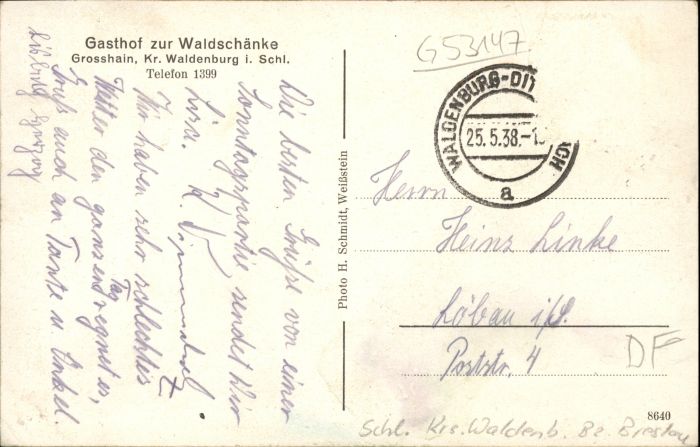 Gasthof zur Waldschänke
Grosshain, Kr. Waldenburg i. Schl.
Telefon 1399
Die besten Grüße von einer
Sonntagspartie sendet Dir
Lisa.
Wir haben sehr schlechtes
Wetter den ganzen Tag regnet es,
Gruß auch an Tante u. Onkel.
Photo H. Schmidt, Weißstein
G53147
WALDENBURG-DIT
25.5.38.-1
a
Herrn
Heinz Linke
Löbau i/S.
Poststr. 4
DF
8640
Schl. Krs. Waldenb. Bz. Breslau